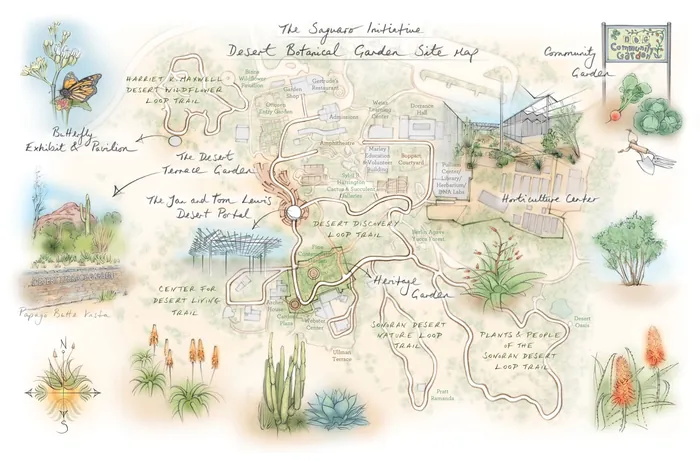 The Saguaro Initiative
Desert Botanical Garden Site Map
Community
Garden
DBG
Community
Garden
HARRIET K. MAXWELL
DESERT WILDFLOWER
LOOP TRAIL
Garden
Shop
Gertrude's
Restaurant
Ottosen
Entry Garden
Admissions
Weeks
Learning
Center
Entrance
Hall
Butterfly
Exhibit & Pavilion
Amphitheatre
Marley
Education
& Volunteer
Building
Support
Courtyard
The Desert
Terrace Garden
Sybil
Harrington
Cactus & Succulent
Galleries
Library/
Herbarium/
DNA Labs
The Jan and Tom Lewis
Desert Portal
Horticulture Center
DESERT DISCOVERY
LOOP TRAIL
Berlin Agave
Yucca Forest
CENTER FOR
DESERT LIVING
TRAIL
Heritage
Garden
Papago Butte Vista
Center
SONORAN DESERT
NATURE LOOP
TRAIL
PLANTS & PEOPLE
OF THE
SONORAN DESERT
LOOP TRAIL
Desert
Oasis
Ullman
Terrace
Pratt
Ramada
N
S